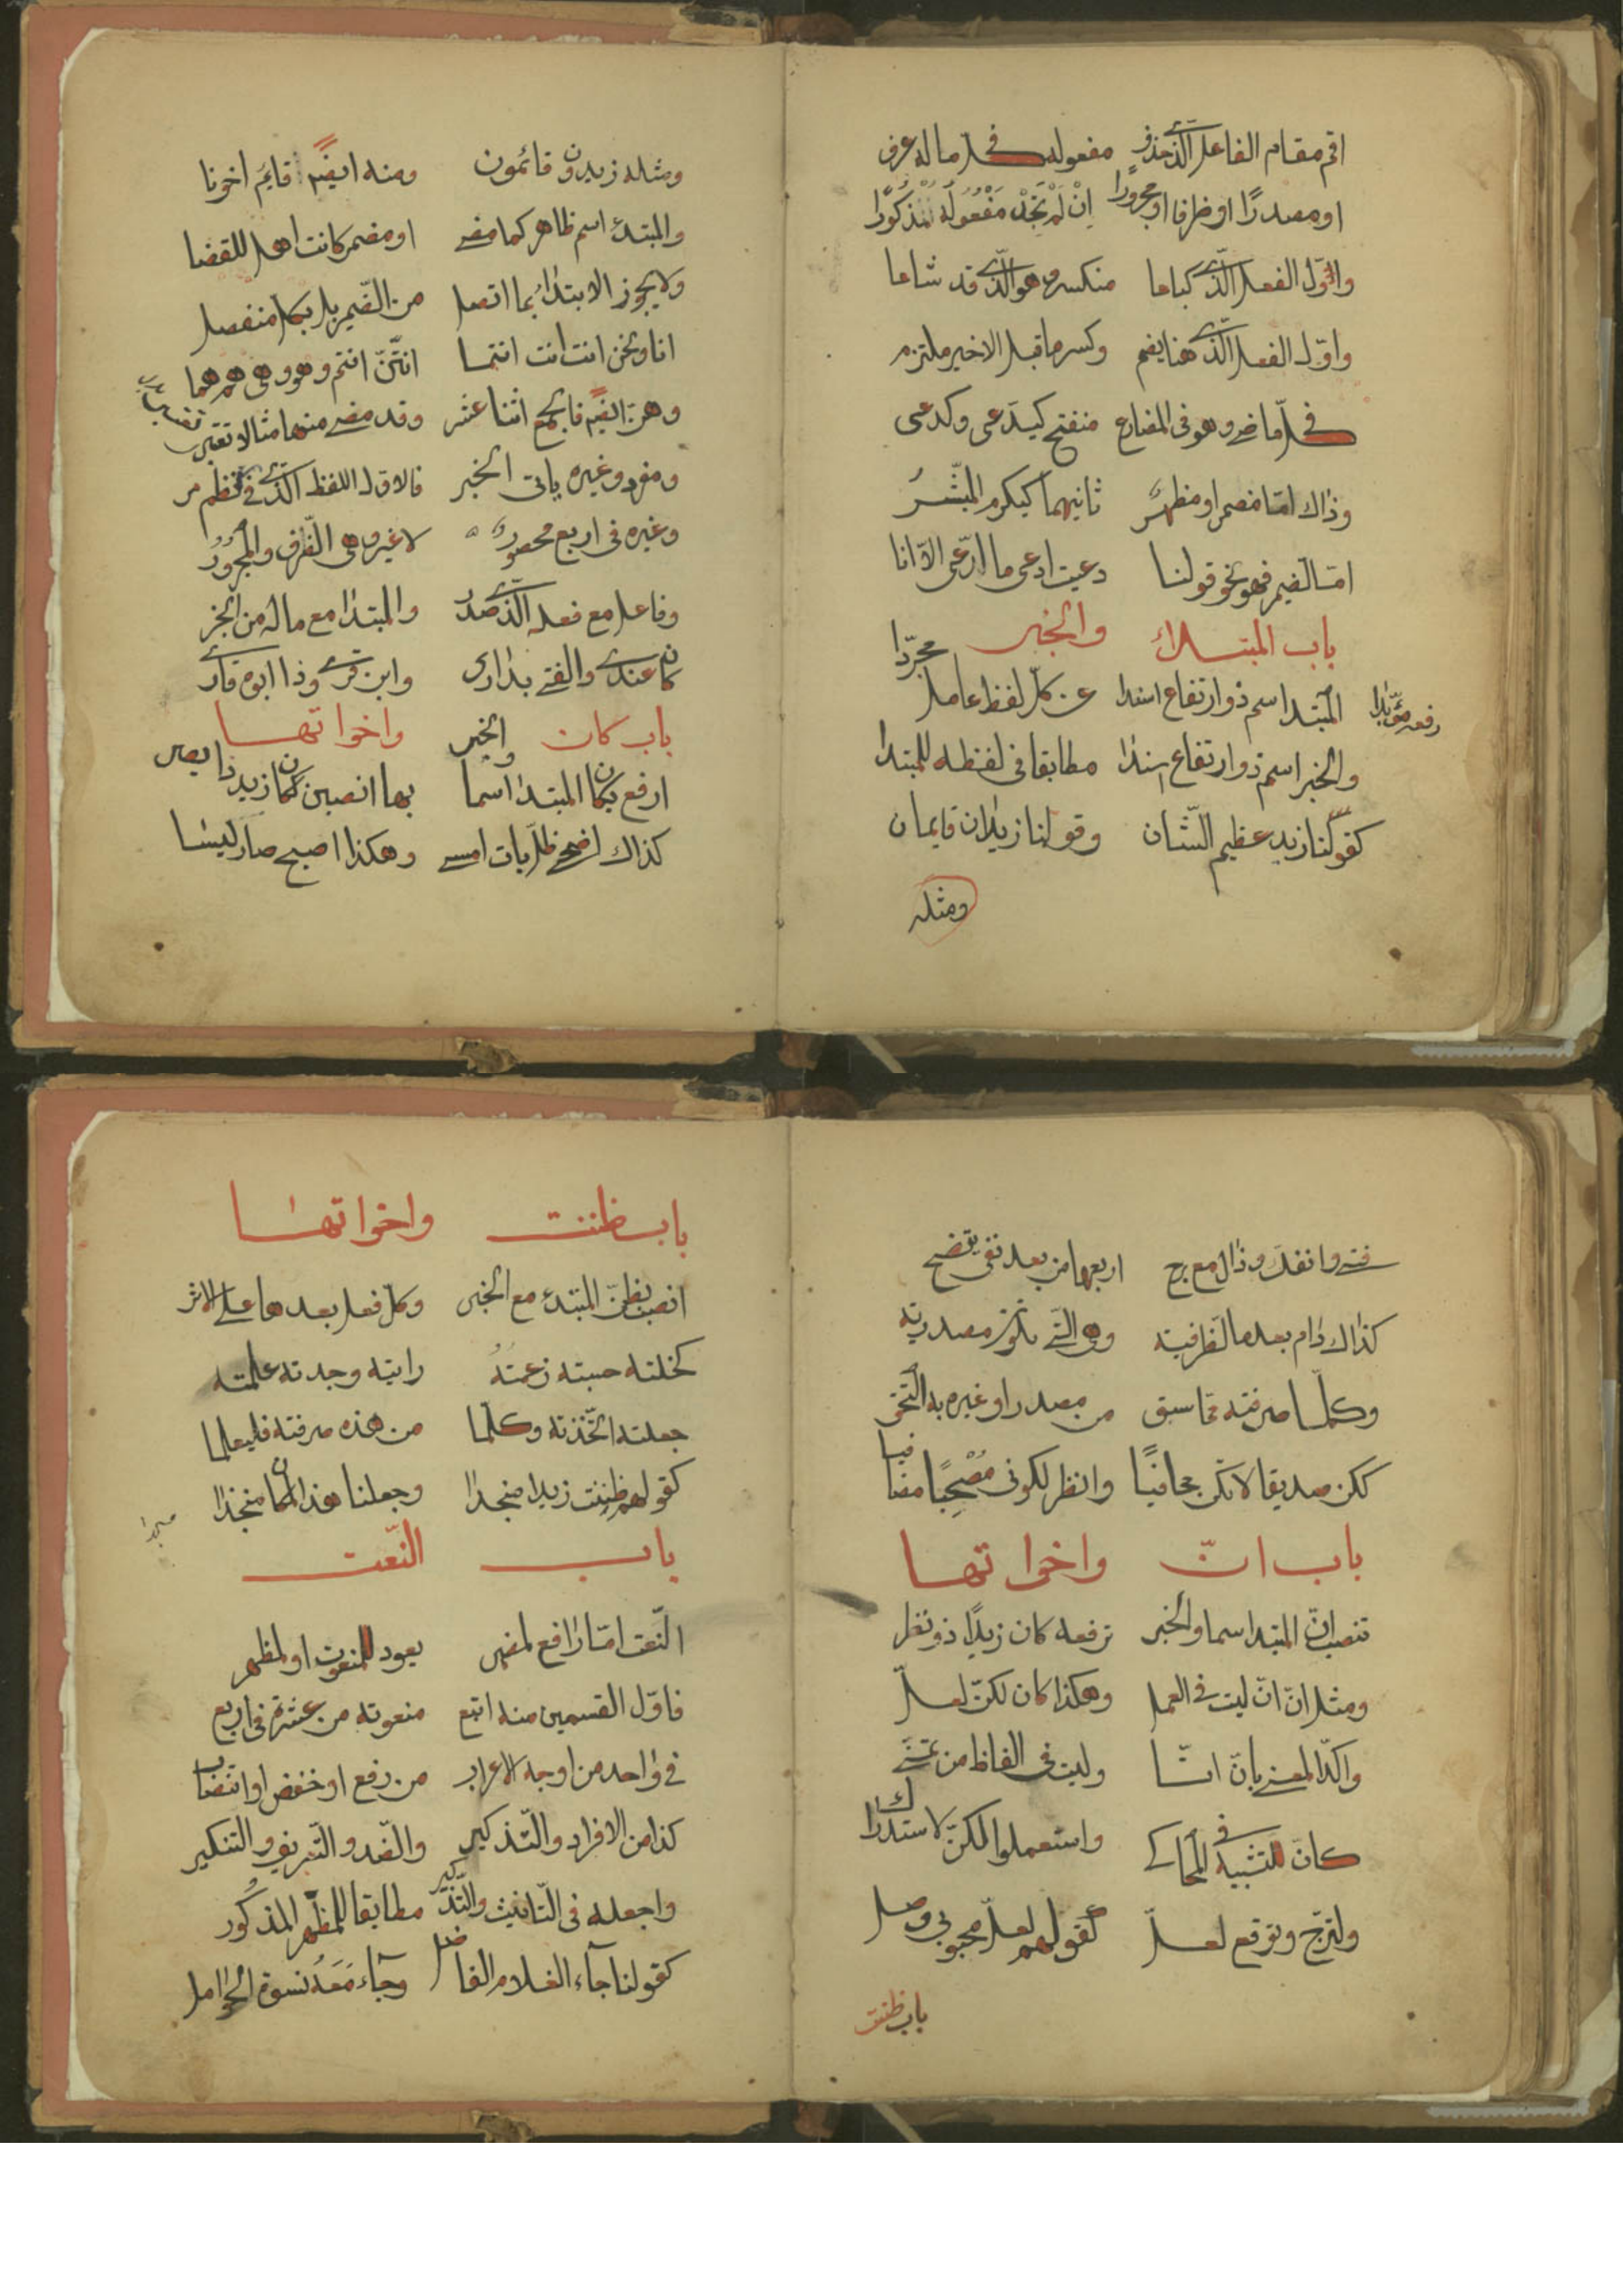 اقم مقام الفاعل الذي حذف مفعوله في كل ما له عرف
او مصدرًا او ظرفا او مجرورًا اِنْ لَمْ تَجِدْ مَفْعُولَهُ الْمَذْكُورَا
واوّل الفعل الّذي كباعا منكسر وهو الّذي قد شاعا
واوّل الفعل الّذي هنا يضم وكسر ما قبل الاخير ملتزم
في كلّ ماضي وهو في المضارع منفتح كيدعى وكدعى
وذاك امّا مضمر او مظهر ثانيهما كيكرم المبشّرُ
امّا الضمير فهو نحو قولنا دعيت ادعى ما ادّعى الّا انا
باب المبتداء والخبر
المبتدا اسم ذو ارتفاع اسندا عن كلّ لفظ عامل مجرّدا
رفعه مؤبدا
والخبر اسم ذو ارتفاع اسندا مطابقا في لفظه للمبتدا
كقولنا زيد عظيم الشّان وقولنا زيدان قايمان
ومثله
ومثله زيدون قائمون ومنه ايضًا قايم اخونا
والمبتدء اسم ظاهر كما مضى او مضمر كانت اهل للقضا
ولا يجوز الابتداء بما اتصل من الضّمير بل بكل منفصل
انا ونحن انت انت انتما انتنّ انتم وهو وهي هم هما
وهن ايضًا فالجمع اثنا عشر وقد مضى منها مثالا تقتبر
ومفرد وغيره ياتى الخبر فالاول اللفظ الّذي في النظم مر
وغيره في اربع محصور لا غير وهي الظّرف والمجرُورُ
وفاعل مع فعله الّذي صدر والمبتدا مع ماله من الخبر
كان عندي والفتى بداري وابن قرى وذا ابوه قارى
باب كان واخواتها
ارفع بكان المبتدا اسما والخبر بها انصبن ككان زيد ذا بصر
كذاك اضحى ظلّ بات امسى وهكذا اصبح صار ليسا
فتى وانفك وزال مع برح اربعها من بعد نفي يتضح
كذاك دام بعد ما الظرفيّه وهي الّتى تكون مصدريّه
وكلّما صرفته ممّا سبق من مصدر او غيره به التحق
ككن صديقا لا تكن مجافيًا وانظر لكوني مُصْبِحًا مصافيا
باب انّ واخواتها
تنصب انّ المبتدا اسما والخبر ترفعه كان زيدًا ذو نظر
ومثل انّ انّ ليت في العمل وهكذا كان لكنّ لعلّ
واكّد المعنى بانّ انّا وليت في الفاظ من تمنّى
كانّ للتشبيه في المحاكي واستعملوا لكنّ لاستدراك
ولترجّ وتوقع لعلّ كقولهم لعلّ محبوبي وصل
باب ظننت
باب ظننت واخواتها
انصب بظنّ المبتدء مع الخبر وكلّ فعل بعدها على الاثر
كخلته حسبته زعمته رايته وجدته علمته
جعلته اتّخذته وكلّما من هذه صرفته فليعلما
كقولهم ظننت زيدا منجدا وجعلنا هذا المكان منجذا
باب النّعت
النّعت امّا رافع لمضمر يعود للمنعوت او لمظهر
فاوّل القسمين منه اتبع منعوته من عشرة في اربع
في واحد من اوجه الاعراب من رفع او خفض او انتصاب
كذا من الافراد والتّذكير والضّد والتّعريف والتنكير
واجعله في التّانيث والتّذكير مطابقا للمظهر المذكُور
كقولنا جآء الغلام الفاضل وجآء مَعَهُ نسوة الحوامل